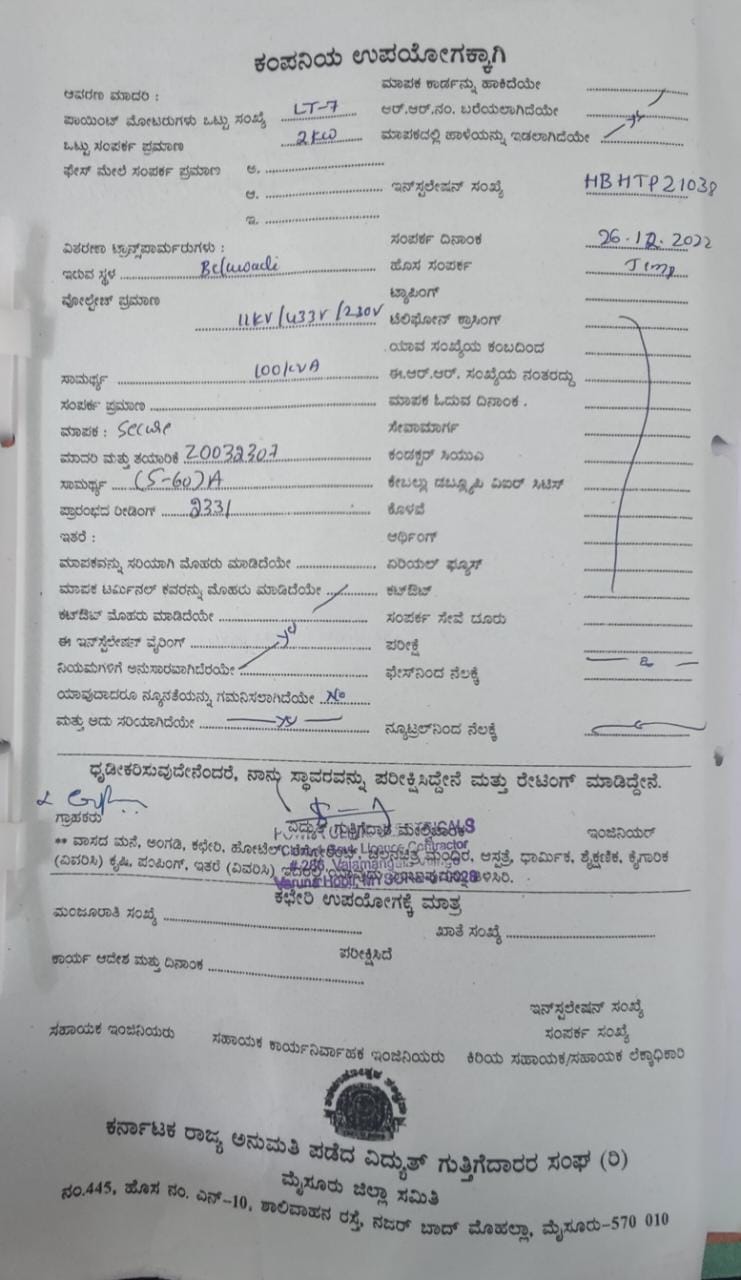 ಕಂಪನಿಯ ಉಪಯೋಗಕ್ಕಾಗಿ
ಆವರಣ ಮಾದರಿ : ಮಾಪಕ ಕಾರ್ಡನ್ನು ಹಾಕಿದೆಯೇ
ಪಾಯಿಂಟ್ ಮೋಟರುಗಳು ಒಟ್ಟು ಸಂಖ್ಯೆ LT-7 ಆರ್.ಆರ್.ನಂ. ಬರೆಯಲಾಗಿದೆಯೇ
ಒಟ್ಟು ಸಂಪರ್ಕ ಪ್ರಮಾಣ 2KW ಮಾಪಕದಲ್ಲಿ ಹಾಳೆಯನ್ನು ಇಡಲಾಗಿದೆಯೇ
ಫೇಸ್ ಮೇಲೆ ಸಂಪರ್ಕ ಪ್ರಮಾಣ ಅ.
ಆ. ಇನ್‌ಸ್ಟಲೇಷನ್ ಸಂಖ್ಯೆ HBHTP21038
ಇ.
ವಿತರಣಾ ಟ್ರಾನ್ಸ್‌ಫಾರ್ಮರುಗಳು : ಸಂಪರ್ಕ ದಿನಾಂಕ 26.12.2022
ಇರುವ ಸ್ಥಳ Belawadi ಹೊಸ ಸಂಪರ್ಕ Temp
ವೋಲ್ಟೇಜ್ ಪ್ರಮಾಣ ಟ್ಯಾಪಿಂಗ್
11KV/433V/230V ಟೆಲಿಫೋನ್ ಕ್ರಾಸಿಂಗ್
ಯಾವ ಸಂಖ್ಯೆಯ ಕಂಬದಿಂದ
ಸಾಮರ್ಥ್ಯ 100KVA ಈ.ಆರ್.ಆರ್. ಸಂಖ್ಯೆಯ ನಂತರದ್ದು
ಸಂಪರ್ಕ ಪ್ರಮಾಣ ಮಾಪಕ ಓದುವ ದಿನಾಂಕ .
ಮಾಪಕ : Secure ಸೇವಾಮಾರ್ಗ
ಮಾದರಿ ಮತ್ತು ತಯಾರಿಕೆ 20032307 ಕಂಡಕ್ಟರ್ ಸಿಯುಎ
ಸಾಮರ್ಥ್ಯ (5-60)A ಕೇಬಲ್ಲು ಡಬ್ಲ್ಯೂಪಿ ವಿಐಆರ್ ಸಿಟಿಸ್
ಪ್ರಾರಂಭದ ರೀಡಿಂಗ್ 2331 ಕೊಳವೆ
ಇತರೆ : ಅರ್ಥಿಂಗ್
ಮಾಪಕವನ್ನು ಸರಿಯಾಗಿ ಮೊಹರು ಮಾಡಿದೆಯೇ ಏರಿಯಲ್ ಫ್ಯೂಸ್
ಮಾಪಕ ಟರ್ಮಿನಲ್ ಕವರನ್ನು ಮೊಹರು ಮಾಡಿದೆಯೇ ಕಟ್‌ಔಟ್
ಕಟ್‌ಔಟ್ ಮೊಹರು ಮಾಡಿದೆಯೇ ಸಂಪರ್ಕ ಸೇವೆ ದೂರು
ಈ ಇನ್‌ಸ್ಟಲೇಷನ್ ವೈರಿಂಗ್ ಪರೀಕ್ಷೆ
ನಿಯಮಗಳಿಗೆ ಅನುಸಾರವಾಗಿದೆರಯೇ ಫೇಸ್‌ನಿಂದ ನೆಲಕ್ಕೆ
ಯಾವುದಾದರೂ ನ್ಯೂನತೆಯನ್ನು ಗಮನಿಸಲಾಗಿದೆಯೇ No
ಮತ್ತು ಅದು ಸರಿಯಾಗಿದೆಯೇ ನ್ಯೂಟ್ರಲ್‌ನಿಂದ ನೆಲಕ್ಕೆ
ಧೃಡೀಕರಿಸುವುದೇನೆಂದರೆ, ನಾನು ಸ್ಥಾವರವನ್ನು ಪರೀಕ್ಷಿಸಿದ್ದೇನೆ ಮತ್ತು ರೇಟಿಂಗ್ ಮಾಡಿದ್ದೇನೆ.
ಗ್ರಾಹಕರು ವಿದ್ಯುತ್ ಗುತ್ತಿಗೆದಾರ ಇಂಜಿನಿಯರ್
** ವಾಸದ ಮನೆ, ಅಂಗಡಿ, ಕಛೇರಿ, ಹೋಟೆಲ್ ಚಲನಚಿತ್ರ ಮಂದಿರ, ಆಸ್ಪತ್ರೆ, ಧಾರ್ಮಿಕ, ಶೈಕ್ಷಣಿಕ, ಕೈಗಾರಿಕ
(ವಿವರಿಸಿ) ಕೃಷಿ, ಪಂಪಿಂಗ್, ಇತರೆ (ವಿವರಿಸಿ)
ಕಛೇರಿ ಉಪಯೋಗಕ್ಕೆ ಮಾತ್ರ
ಮಂಜೂರಾತಿ ಸಂಖ್ಯೆ ಖಾತೆ ಸಂಖ್ಯೆ
ಪರೀಕ್ಷಿಸಿದೆ
ಕಾರ್ಯ ಆದೇಶ ಮತ್ತು ದಿನಾಂಕ
ಇನ್‌ಸ್ಟಲೇಷನ್ ಸಂಖ್ಯೆ
ಸಂಪರ್ಕ ಸಂಖ್ಯೆ
ಸಹಾಯಕ ಇಂಜಿನಿಯರು ಸಹಾಯಕ ಕಾರ್ಯನಿರ್ವಾಹಕ ಇಂಜಿನಿಯರು ಕಿರಿಯ ಸಹಾಯಕ/ಸಹಾಯಕ ಲೆಕ್ಕಾಧಿಕಾರಿ
ಕರ್ನಾಟಕ ರಾಜ್ಯ ಅನುಮತಿ ಪಡೆದ ವಿದ್ಯುತ್ ಗುತ್ತಿಗೆದಾರರ ಸಂಘ (ರಿ)
ಮೈಸೂರು ಜಿಲ್ಲಾ ಸಮಿತಿ
ನಂ.445, ಹೊಸ ನಂ. ಎನ್-10, ಶಾಲಿವಾಹನ ರಸ್ತೆ, ನಜರ್ ಬಾದ್ ಮೊಹಲ್ಲಾ, ಮೈಸೂರು-570 010